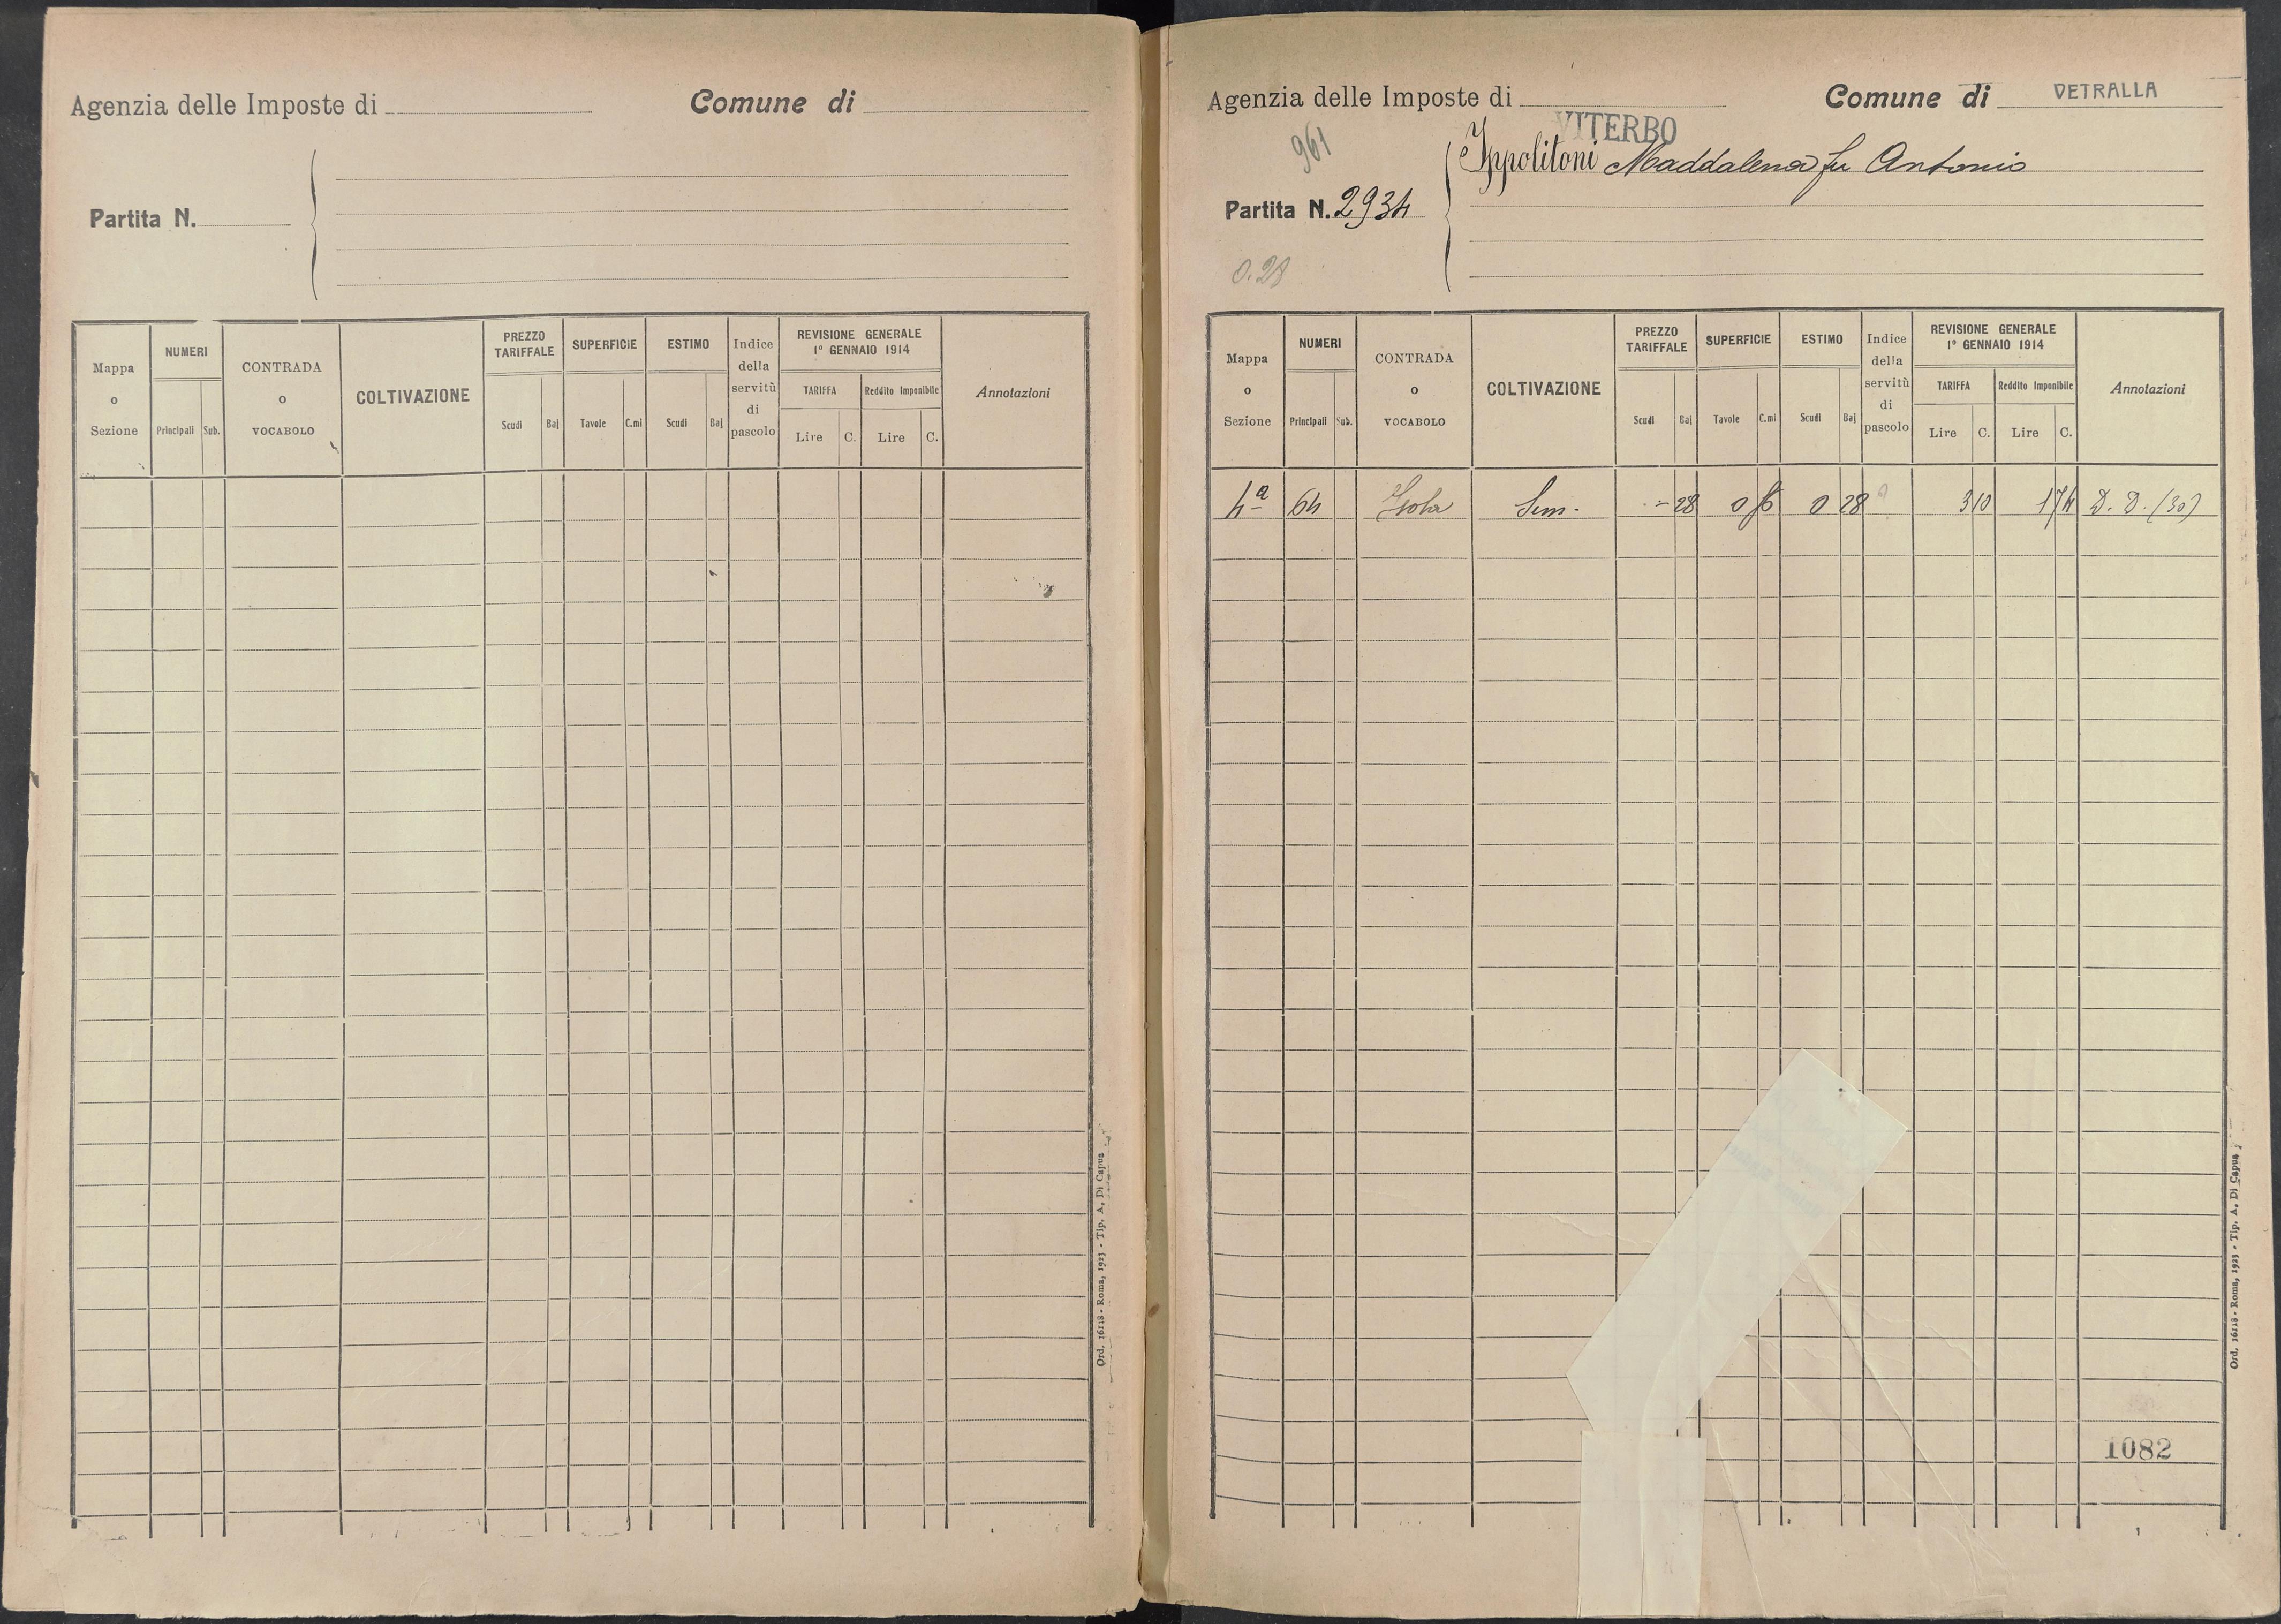 Agenzia delle Imposte di
Comune di
Partita N.
Mappa o Sezione
NUMERI
Principali
Sub.
CONTRADA o VOCABOLO
COLTIVAZIONE
PREZZO TARIFFALE
Scudi
Baj
SUPERFICIE
Tavole
C.mi
ESTIMO
Scudi
Baj
Indice della servitù di pascolo
REVISIONE GENERALE
1° GENNAIO 1914
TARIFFA
Lire
C.
Reddito Imponibile
Lire
C.
Annotazioni
Ord. 16118 - Roma, 1923 - Tip. A. Di Capua
Agenzia delle Imposte di VITERBO
Comune di VETRALLA
961
Ippolitoni Maddalena fu Antonio
Partita N. 2934
0.28
Mappa o Sezione
NUMERI
Principali
Sub.
CONTRADA o VOCABOLO
COLTIVAZIONE
PREZZO TARIFFALE
Scudi
Baj
SUPERFICIE
Tavole
C.mi
ESTIMO
Scudi
Baj
Indice della servitù di pascolo
REVISIONE GENERALE
1° GENNAIO 1914
TARIFFA
Lire
C.
Reddito Imponibile
Lire
C.
Annotazioni
4ª 64 Sem. - 28 0 28 3 10 1 74 D. D. (30)
1082
Ord. 16118 - Roma, 1923 - Tip. A. Di Capua
1